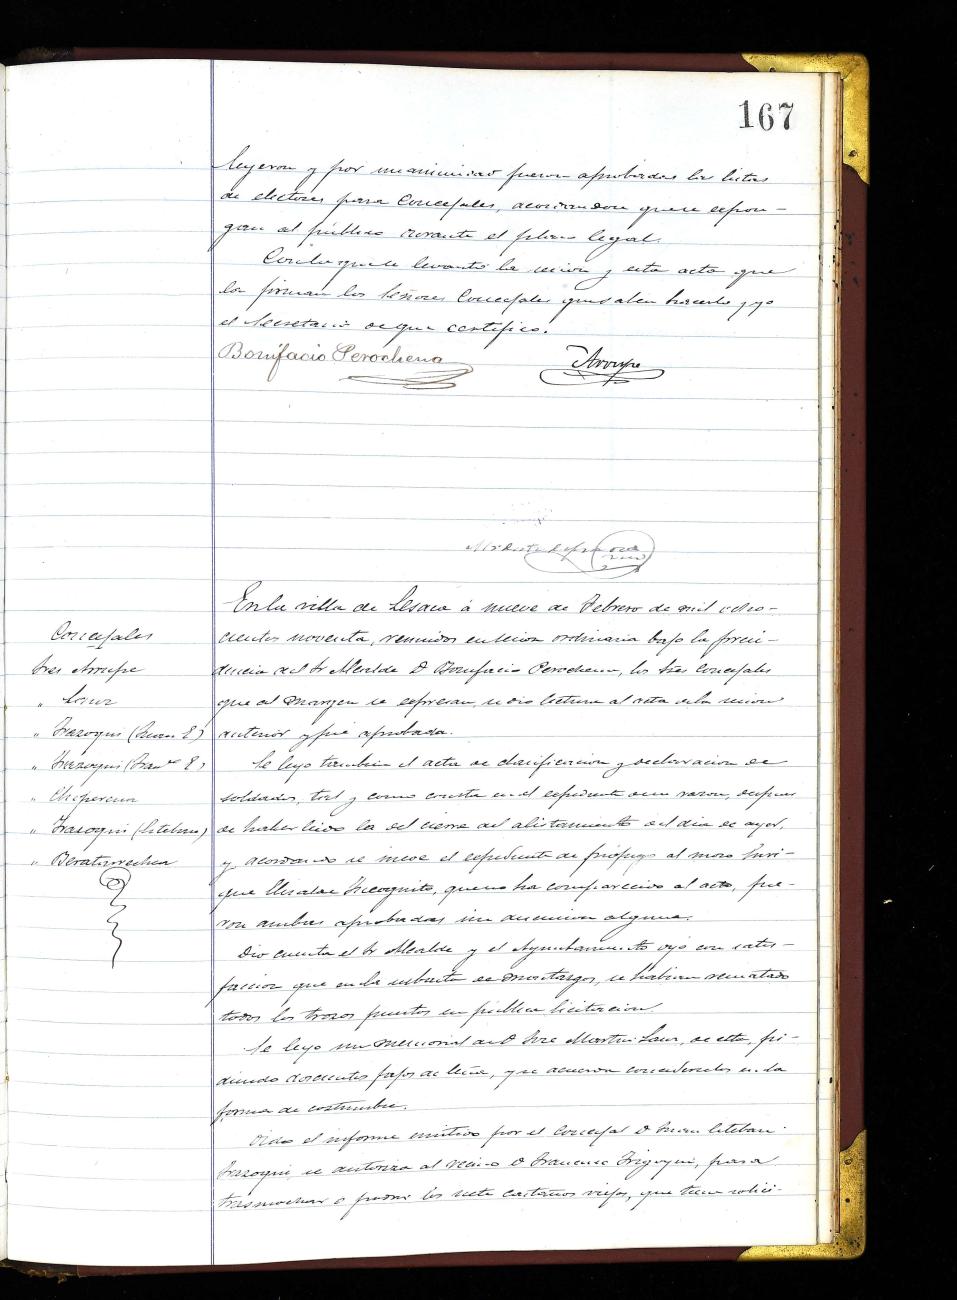 167
leyeron y por unanimidad fueron aprobadas las listas
de electores para Concejales, acordandose que se expon-
gan al público durante el plazo legal.
Con lo que se levantó la sesion y esta acta que
la firman los Señores Concejales que saben hacerlo y yo
el Secretario de que certifico.
Bonifacio Perochena
Arrupe
Modesto de
En la villa de Lesaca á nueve de Febrero de mil ocho-
cientos noventa, reunidos en sesion ordinaria bajo la presi-
dencia del Sr Alcalde D Bonifacio Perochena, los Sres Concejales
que al margen se espresan, se dio lectura al acta de la sesion
anterior y fué aprobada.
Concejales
Sres Arrupe
" Sanz
" Irazoqui (Juan E)
" Irazoqui (Fran.co E)
" Chopercena
" Irazoqui (Esteban)
" Beraturrechea
Se leyó tambien el acta de clasificacion y declaracion de
soldados, tal y como consta en el espediente de su razon, despues
de haber leido la del cierre del alistamiento del dia de ayer,
y acordando se incoe el espediente de prófugo al mozo Enri-
que Incognito, que no ha comparecido al acto, fue-
ron ambas aprobadas sin discusion alguna.
Dio cuenta el Sr Alcalde y el Ayuntamiento oyó con satis-
faccion que en la subasta de montazgos, se habian rematado
todos los trozos puestos en pública licitacion.
Se leyó un memorial de D José Martin Sanz, de esta, pi-
diendo doscientos fajos de leña, y se acuerda concederselos en la
forma de costumbre.
Oido el informe emitido por el Concejal D Juan Esteban
Irazoqui, se autoriza al vecino D Francisco Irigoyen, para
trasmochar o podar los siete castaños viejos, que tiene solici-